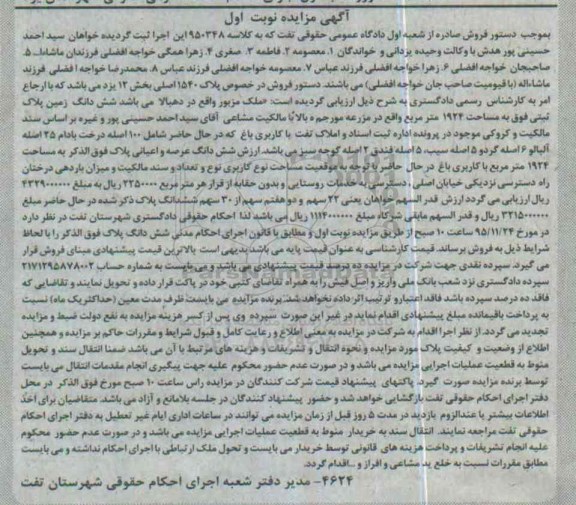 آگهی مزایده نوبت اول
بموجب دستور فروش صادره از شعبه اول دادگاه عمومی حقوقی تفت که به کلاسه ۹۵۰۳۴۸ این اجرا ثبت گردیده خواهان سید احمد
حسینی پور هدش با وکالت وحیده یزدانی و خواندگان ۱. معصومه ۲. فاطمه ۳. صغری ۴. زهرا همگی خواجه افضلی فرزندان ماشاالله ۵.
صاحبجان خواجه افضلی ۶. زهرا خواجه افضلی فرزند عباس ۷. معصومه خواجه افضلی فرزند عباس ۸. محمدرضا خواجه افضلی فرزند
ماشاءاله (با قیومیت صاحب جان خواجه افضلی) می باشند. دستور فروش در خصوص پلاک ۱۵۴۰ اصلی بخش ۱۲ یزد می باشد که با ارجاع
امر به کارشناس رسمی دادگستری به شرح ذیل ارزیابی گردیده است: «ملک مزبور واقع در دهبالا می باشد شش دانگ زمین پلاک
ثبتی فوق به مساحت ۱۹۲۴ متر مربع واقع در مزرعه مورجم دهبالا با مالکیت مشاعی آقای سید احمد حسینی پور و غیره بر اساس سند
مالکیت و کروکی موجود در پرونده اداره ثبت اسناد و املاک تفت با کاربری باغ که در حال حاضر شامل ۱۰۰ اصله درخت بادام ۳۵ اصله
آلبالو ۶ اصله گردو ۵ اصله سیب، ۵ اصله فندق ۲ اصله گوجه سبز می باشد. ارزش شش دانگ عرصه و اعیانی پلاک فوق الذکر به مساحت
۱۹۲۴ متر مربع با کاربری باغ در حال حاضر با توجه به موقعیت مساحت نوع کاربری نوع و تعداد و سند مالکیت و میزان باردهی درختان
راه دسترسی نزدیکی خیابان اصلی، دسترسی به خدمات روستایی و بدون حقابه از قرار هر متر مربع ۲۲۵۰۰۰۰ ریال به مبلغ ۴۳۲۹۰۰۰۰۰۰
ریال ارزیابی می گردد ارزش قدر السهم خواهان یعنی ۲۲ سهم و دو هفتم سهم از ۳۰ سهم ششدانگ پلاک ذکر شده در حال حاضر مبلغ
۳۲۱۵۰۰۰۰۰۰ ریال و قدر السهم مابقی شرکاء مبلغ ۱۱۱۴۰۰۰۰۰۰ ریال می باشد لذا احکام حقوقی دادگستری شهرستان تفت در نظر دارد
در مورخ ۹۵/۱۱/۲۴ ساعت ۱۰ صبح از طریق مزایده نوبت اول و مطابق با قانون اجرای احکام مدنی شش دانگ پلاک فوق الذکر را با لحاظ
شرایط ذیل به فروش برساند. قیمت کارشناسی به عنوان قیمت پایه می باشد بدیهی است بالاترین قیمت پیشنهادی مبنای فروش قرار
می گیرد. سپرده نقدی جهت شرکت در مزایده ده درصد قیمت پیشنهادی می باشد که می بایست به شماره حساب ۲۱۷۱۲۹۵۸۷۸۰۰۲
سپرده دادگستری نزد شعب بانک ملی واریز و اصل فیش را به همراه تقاضای کتبی خود در پاکت قرار داده و تحویل نمایند و تقاضایی که
فاقد ده درصد سپرده باشد فاقد اعتبار و ترتیب اثر داده نخواهد شد. برنده مزایده می بایست ظرف مدت معین (حداکثر یک ماه) نسبت
به پرداخت باقیمانده مبلغ پیشنهادی اقدام نماید در غیر این صورت سپرده وی پس از کسر هزینه مزایده به نفع دولت ضبط و مزایده
تجدید می گردد. از نظر اجرا اقدام به شرکت در مزایده به معنی اطلاع و رعایت کامل و قبول شرایط و مقررات حاکم بر مزایده و همچنین
اطلاع از وضعیت و کیفیت پلاک مورد مزایده و نحوه انتقال و تشریفات و هزینه های مرتبط با آن می باشد ضمنا انتقال سند و تحویل
منوط به قطعیت عملیات اجرایی مزایده می باشد و در صورت عدم حضور محکوم علیه جهت پیگیری انجام مقدمات انتقال می بایست
توسط برنده مزایده صورت گیرد. پاکتهای پیشنهاد قیمت شرکت کنندگان در مزایده راس ساعت ۱۰ صبح مورخ فوق الذکر در محل
دفتر اجرای احکام حقوقی تفت بازگشایی خواهد شد و حضور پیشنهاد کنندگان در جلسه بلامانع و آزاد می باشد. متقاضیان برای اخذ
اطلاعات بیشتر یا عندالزوم بازدید در مدت ۵ روز قبل از زمان مزایده می توانند در ساعات اداری ایام غیر تعطیل به دفتر اجرای احکام
حقوقی تفت مراجعه نمایند. انتقال سند به خریدار منوط به قطعیت عملیات اجرایی مزایده می باشد و در صورت عدم حضور محکوم
علیه انجام تشریفات و پرداخت هزینه های قانونی توسط خریدار می بایست و تحول ملک ارتباطی با اجرای احکام نداشته و می بایست
مطابق مقررات نسبت به خلع ید مشاعی و افراز و ... اقدام گردد.
۴۶۲۴- مدیر دفتر شعبه اجرای احکام حقوقی شهرستان تفت